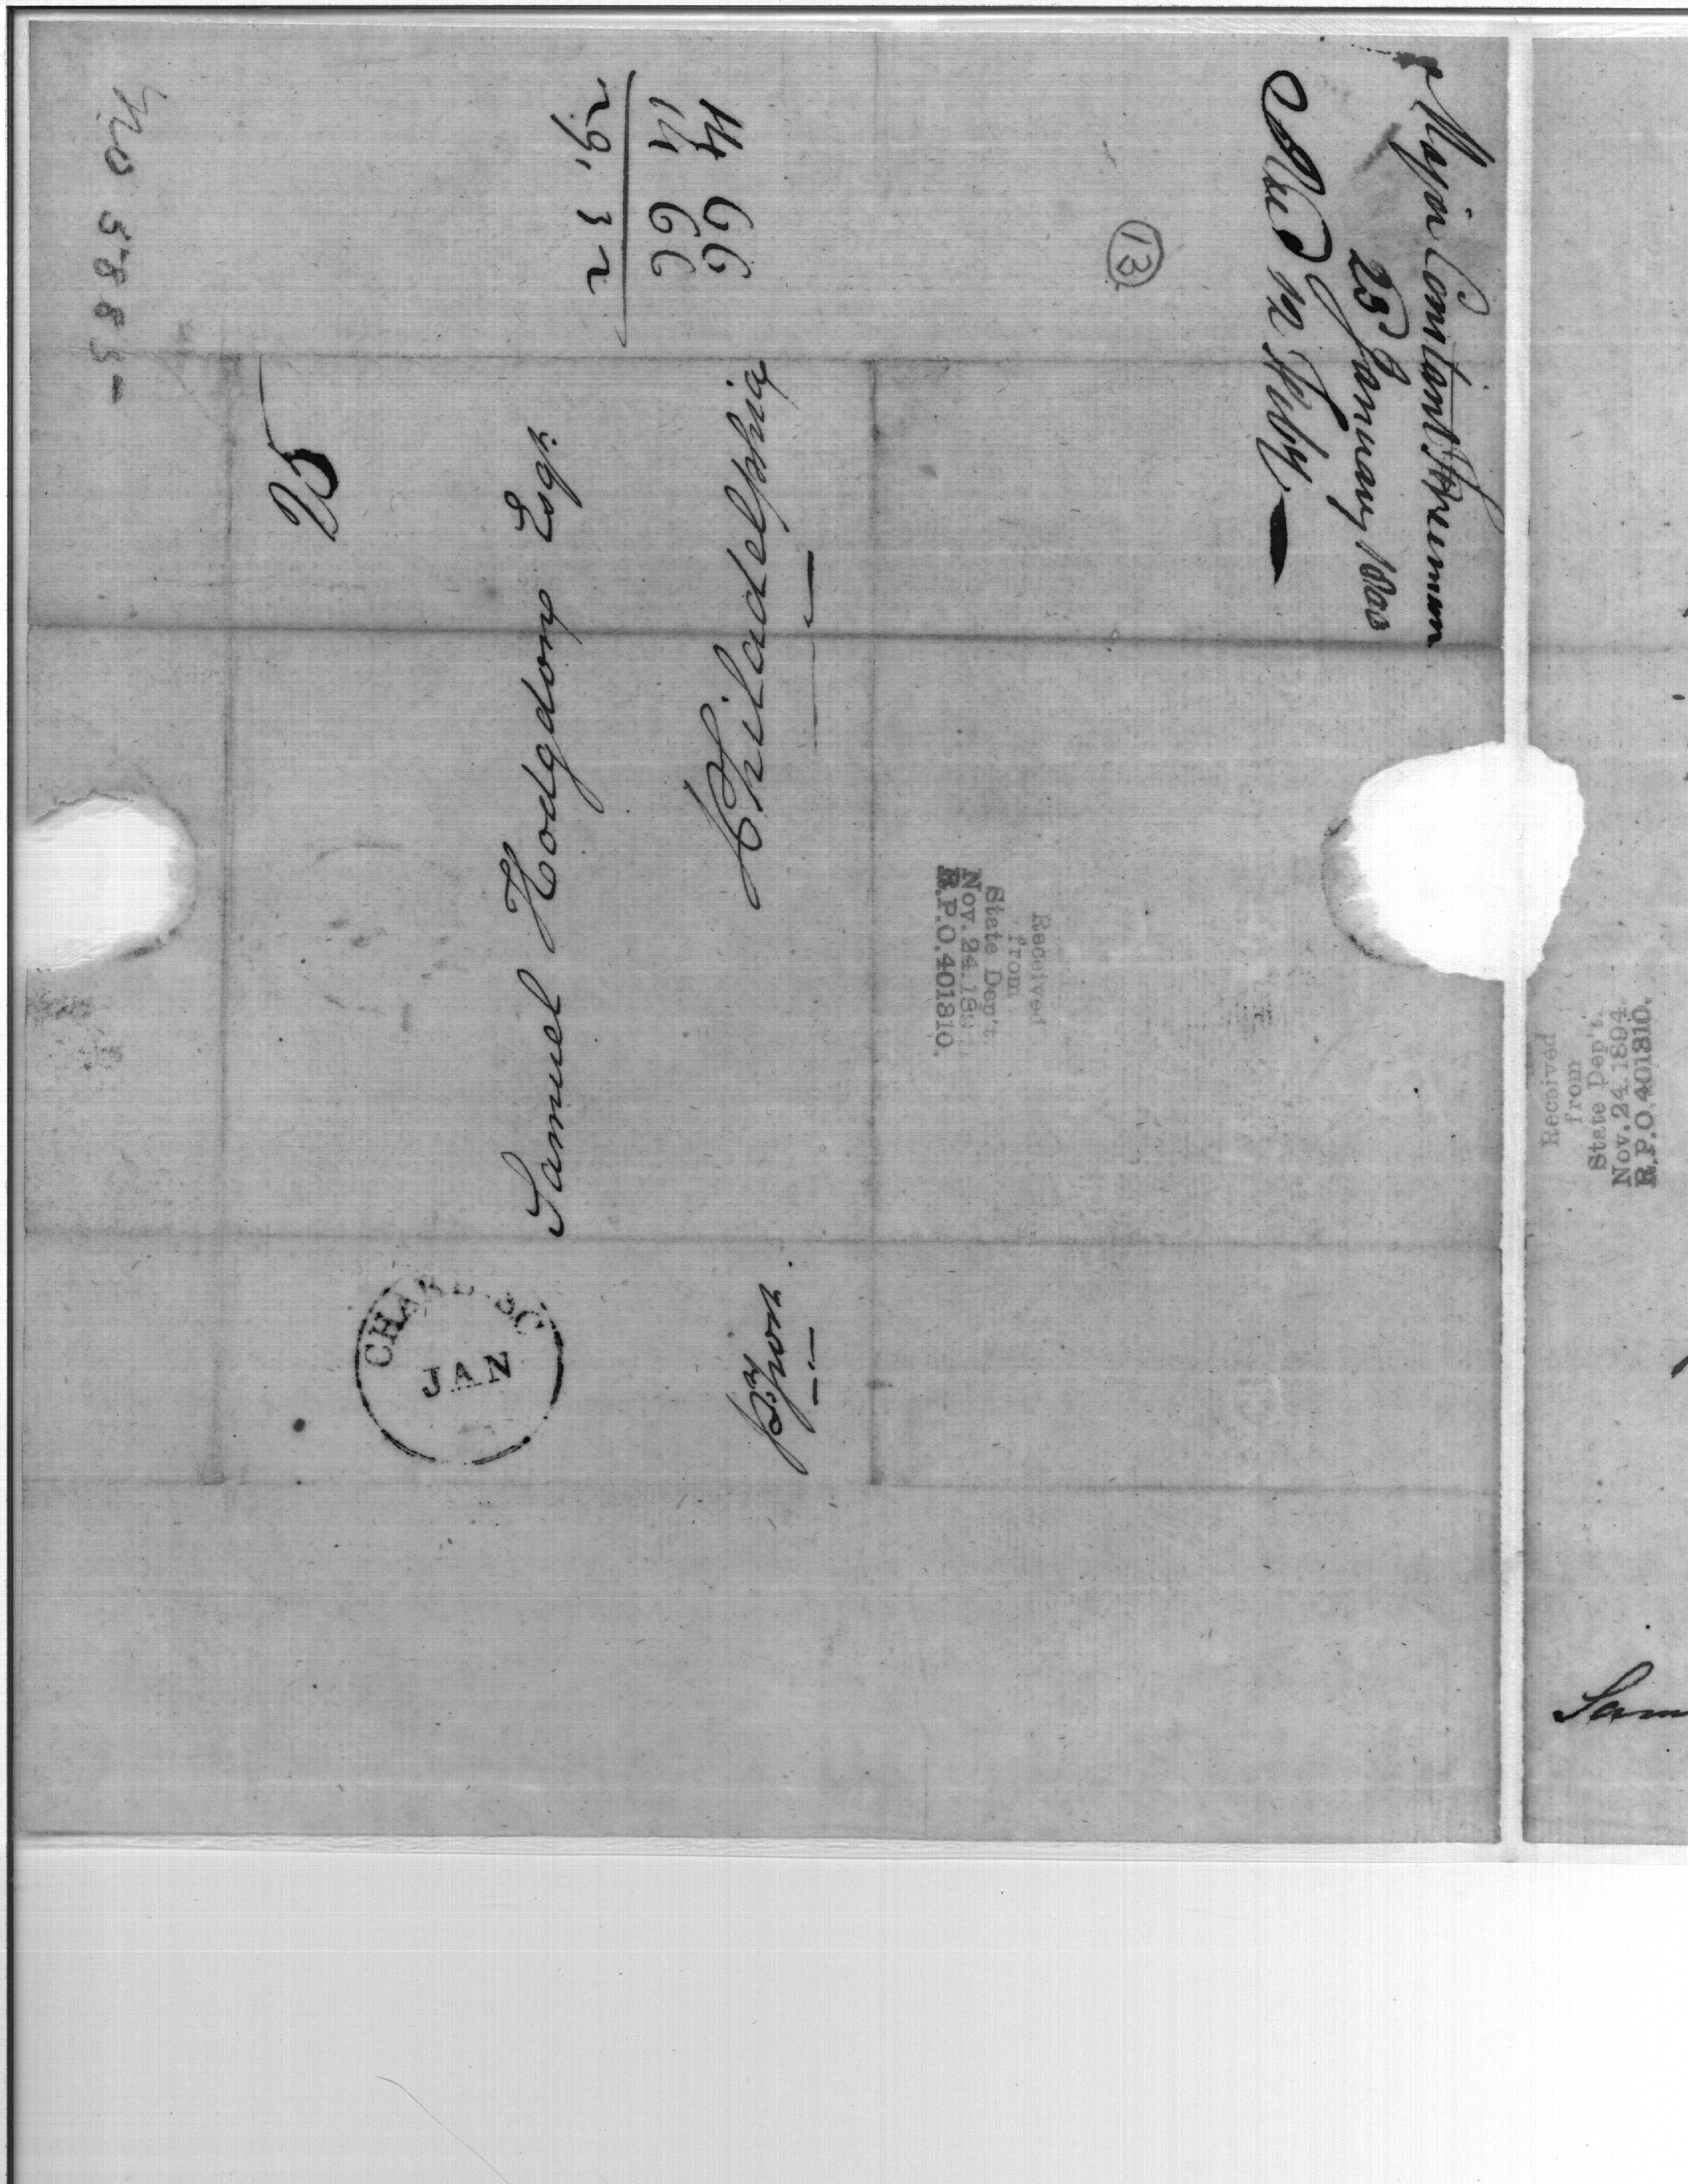 Major Constant Freeman
23d January 1800
Rec'd 12 Feby.
13
14 66
14 66
29.32
No 5885
25
Samuel Hodgdon Esqr.
Philadelphia
CHA SC
JAN
Received
from
State Dep't.
Nov. 24. 189
R.P.O. 401310.
Received
from
State Dep't.
Nov. 24. 1894.
R.P.O. 401310.
Sam